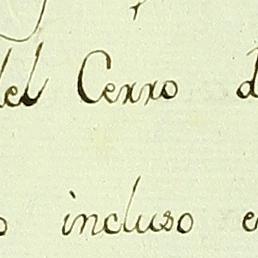 del Cerro d
o incluso e